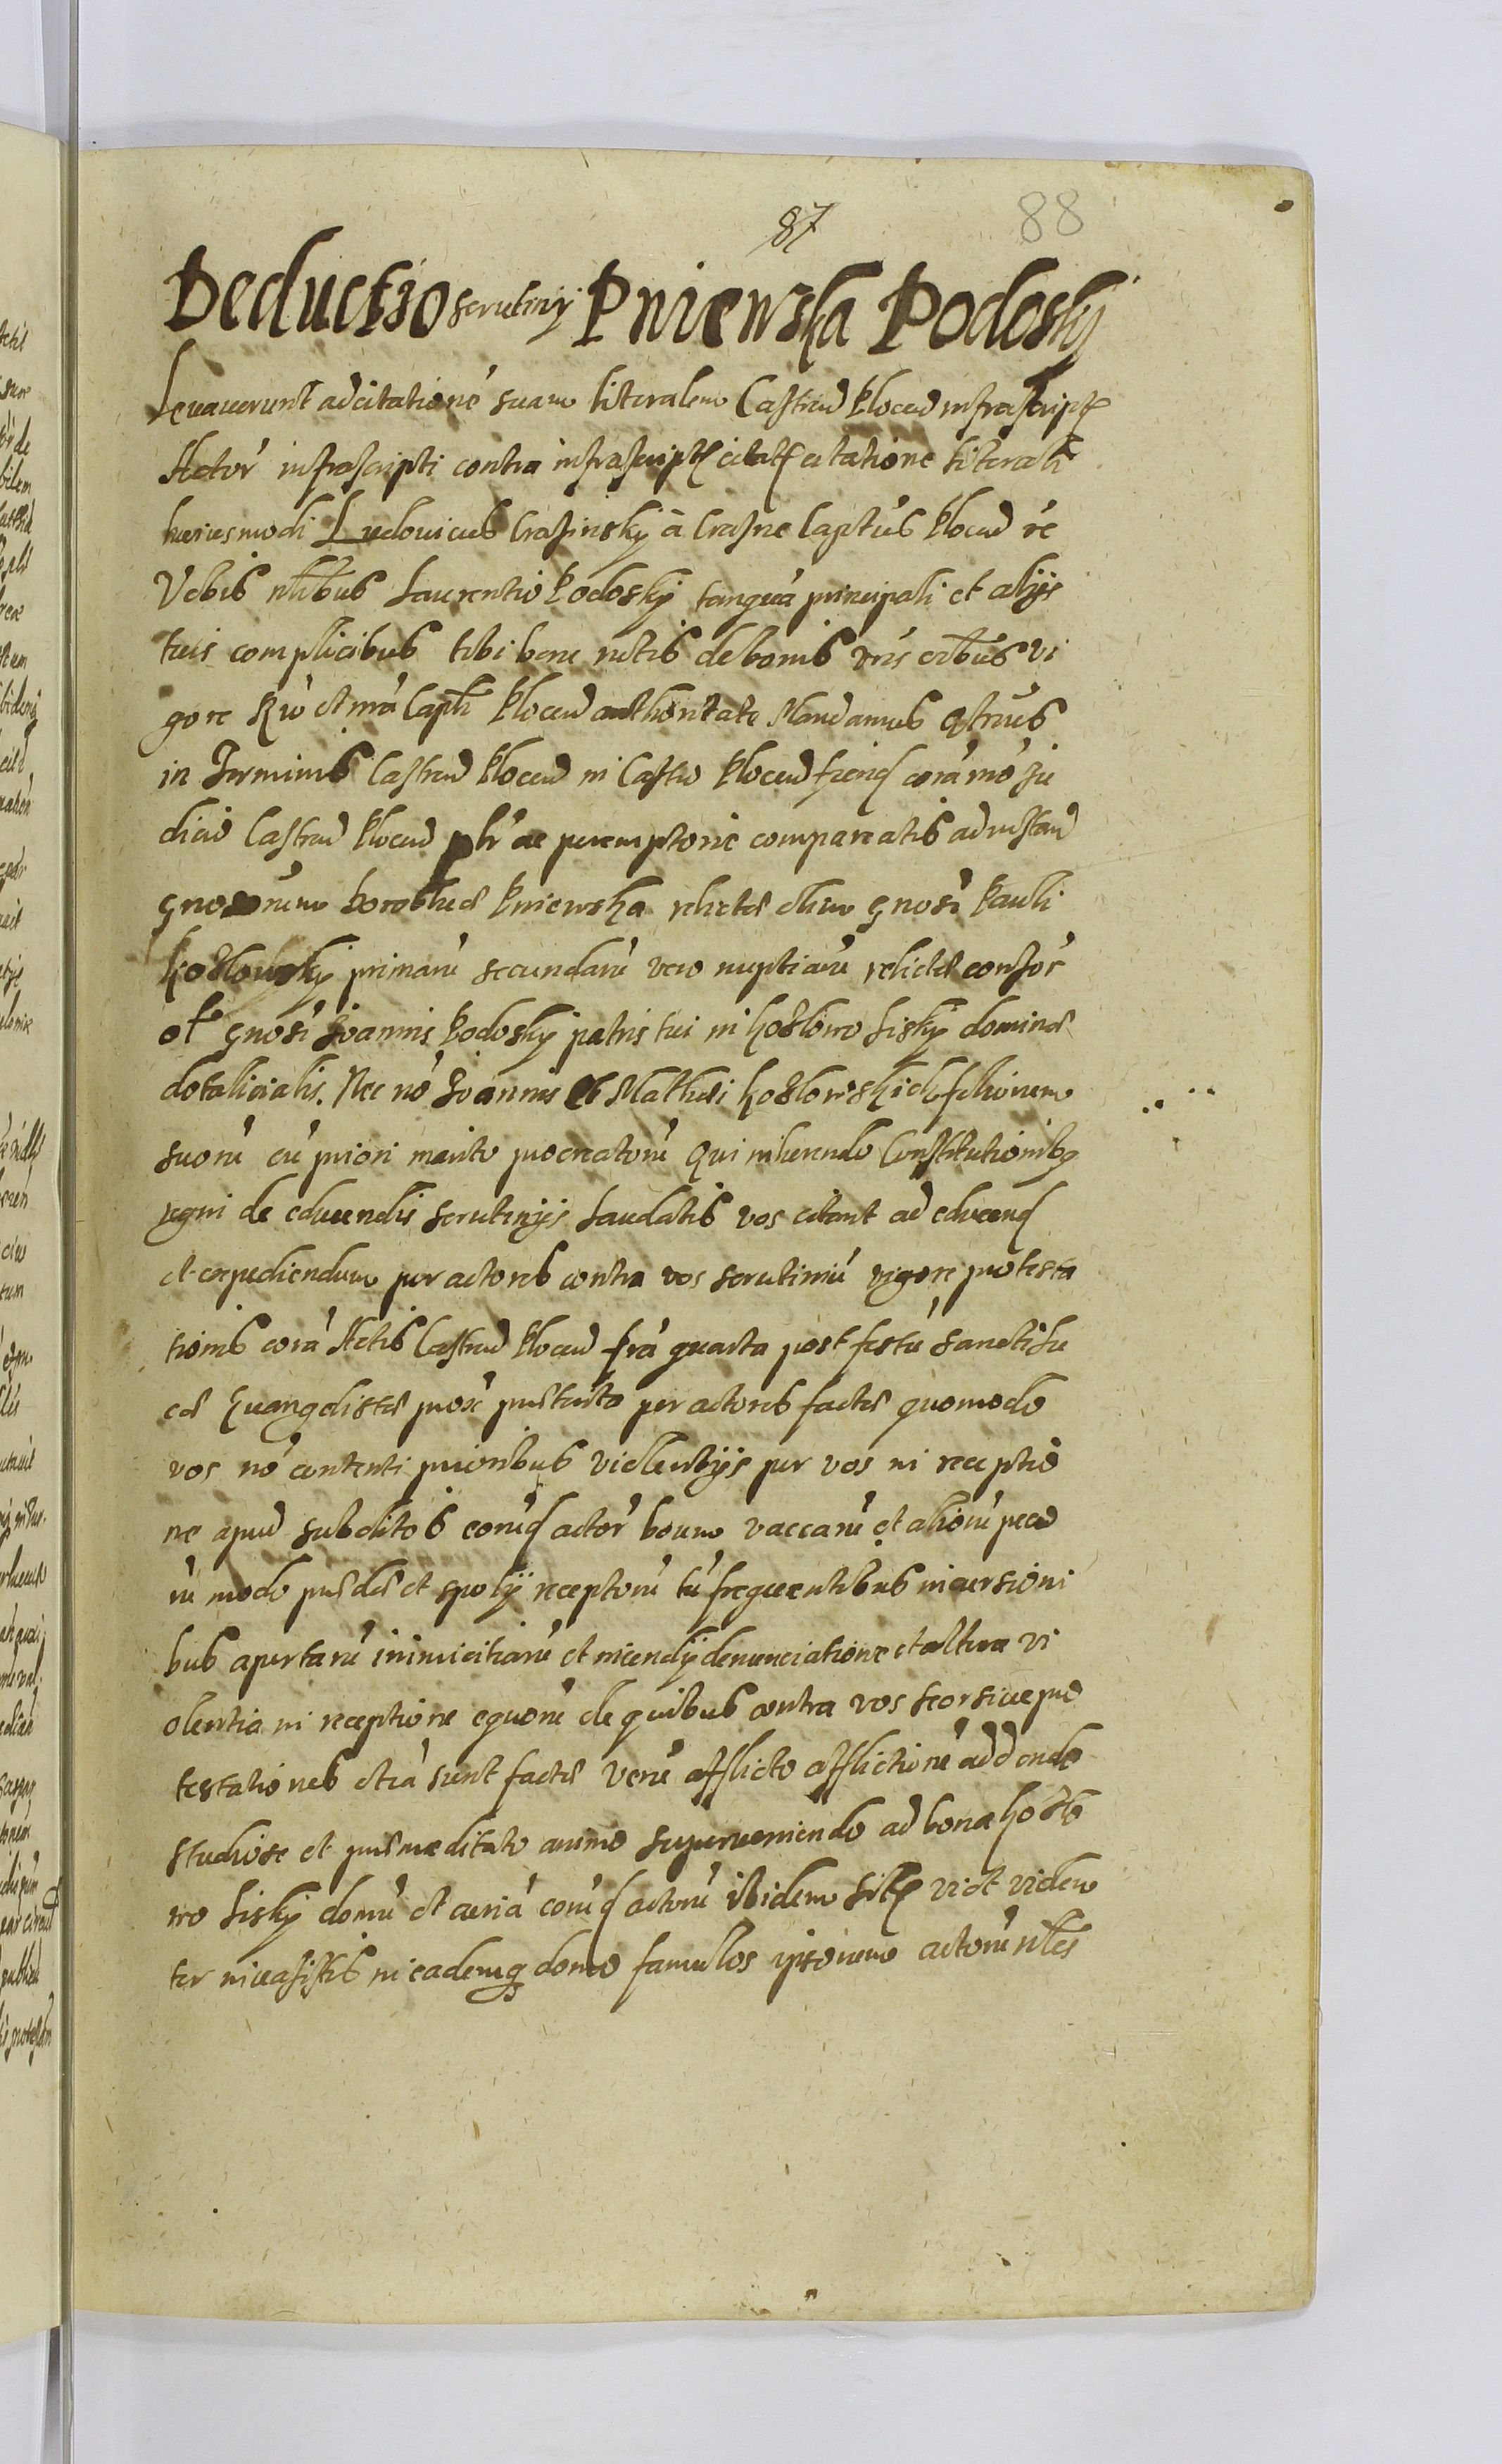 87
88
Deductio scrutiny Pniewska Podosky
Levaverunt ad citationé suam literalem Castren Plocen infrascript
Actor infrascripti contra infrascript citat citatione literali
huiusmodi Ludovicus Crasinsky à Crasne Captus Plocen
Vobis nlibus Laurentio Podosky tanquá principali et alys
tuis complicibus tibi bene notis de bonis vris oibus vi
gore Ru et mrá Capli Plocen authoritate Mandamus
in Terminis Castren Plocen in Castro Plocen fiend corá nro Ju
dicio Castren Plocen plr ac peremptorie compareatis ad instan
gnosarum Dorothea Pniewska relicta olim gnosi Pauli
Kozlowsky primarú secundarú vero nuptiarú relicta consor
ol gnosi Joannis Podosky patris tui in Kozlowo Lisky domina
dotalicialis. Nec nó Joannis et Mathei Kozlowskich filiorum
suorú cú priori marito procreatorú Qui inherendo Constitutionibq
regni de educendis scrutinys Laudatis vos citant ad educend
et expediendum per actores contra vos scrutiniú vigore protesta
tionis corá Actis Castren Plocen frá quarta post festú sancti Lu
ca Euangelista prox praeterito per actores facta quomodo
vos nó contenti prioribus violentys per vos in receptio
ne apud subditos eorúd actor boum vaccarú et aliorú peco
rú modo praeda et spoly receptorú tú frequentibus incursioni
bus apertarú inimicitiarú et incendy denunciatione et altera vi
olentia in receptione equorú de quibus contra vos seorsive pro
testationes etiá sunt facta verú afflicto afflictioné addendo
studiose et praemeditato animo superveniendo ad bona Kozlo
wo Lisky domú et curiá eorúd actorú ibidem sit viol violen
ter invasistis in eademq domo famulos ipsorum actorú nles